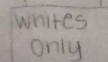 whites
only